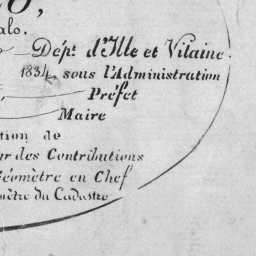 O,
alo.
Dépt. d'Ille et Vilaine
1834, sous l'Administration
Préfet
Maire
tion de
ur des Contributions
Géomètre en Chef
mètre du Cadastre